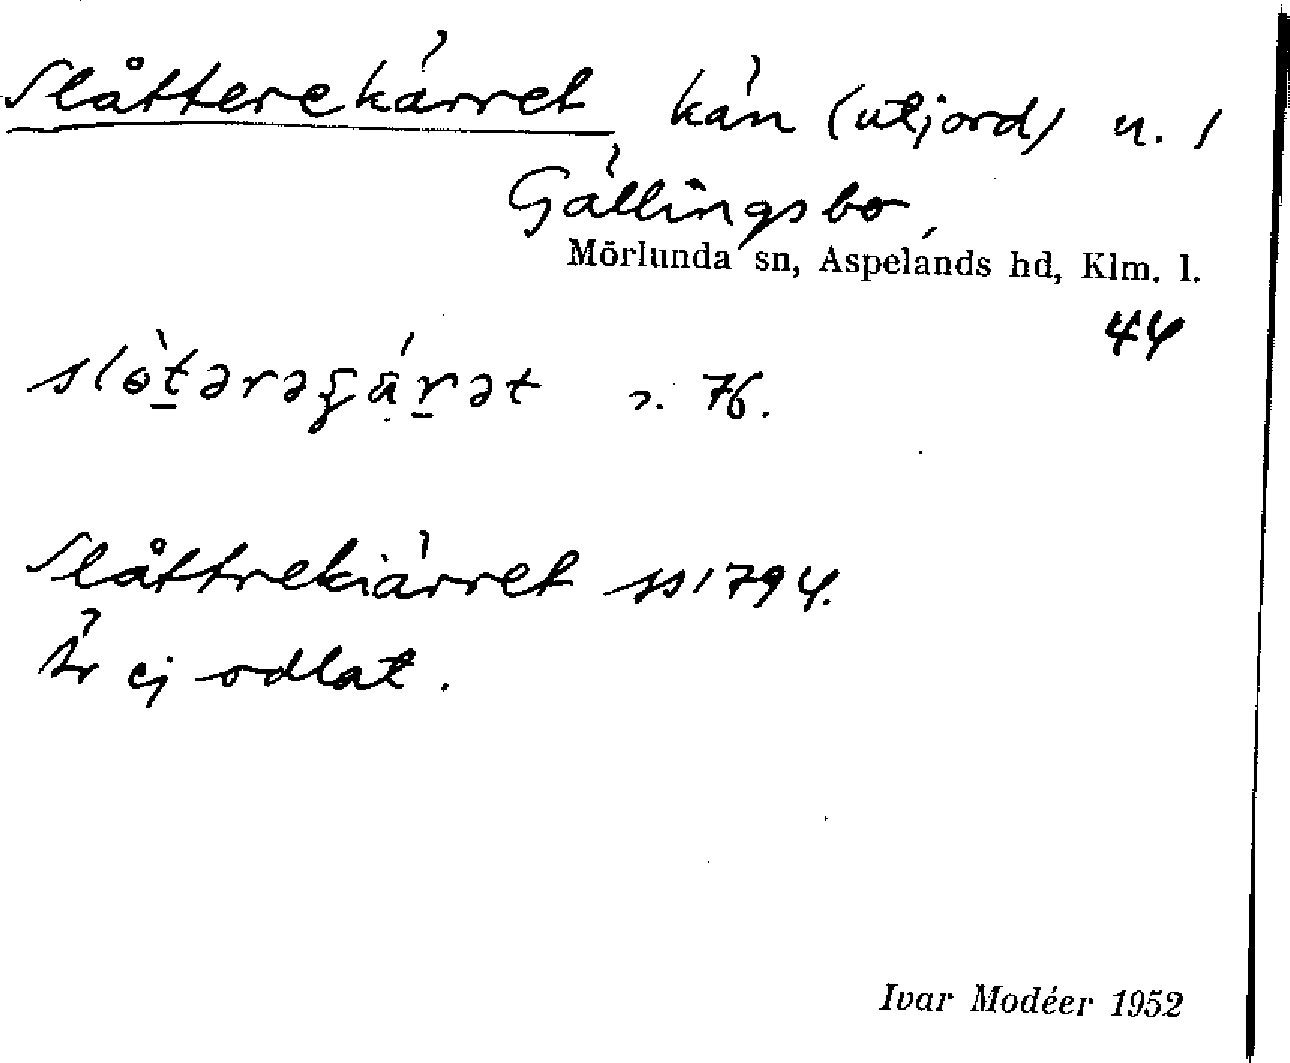 Slåtterekärret kän (utjord) u. /
Gällingsbo,
Mörlunda sn, Aspelands hd, Klm. l.
44
slòtərəʂárət 76.
Slåttrekiärret ss 1794.
Är ej odlat.
Ivar Modéer 1952